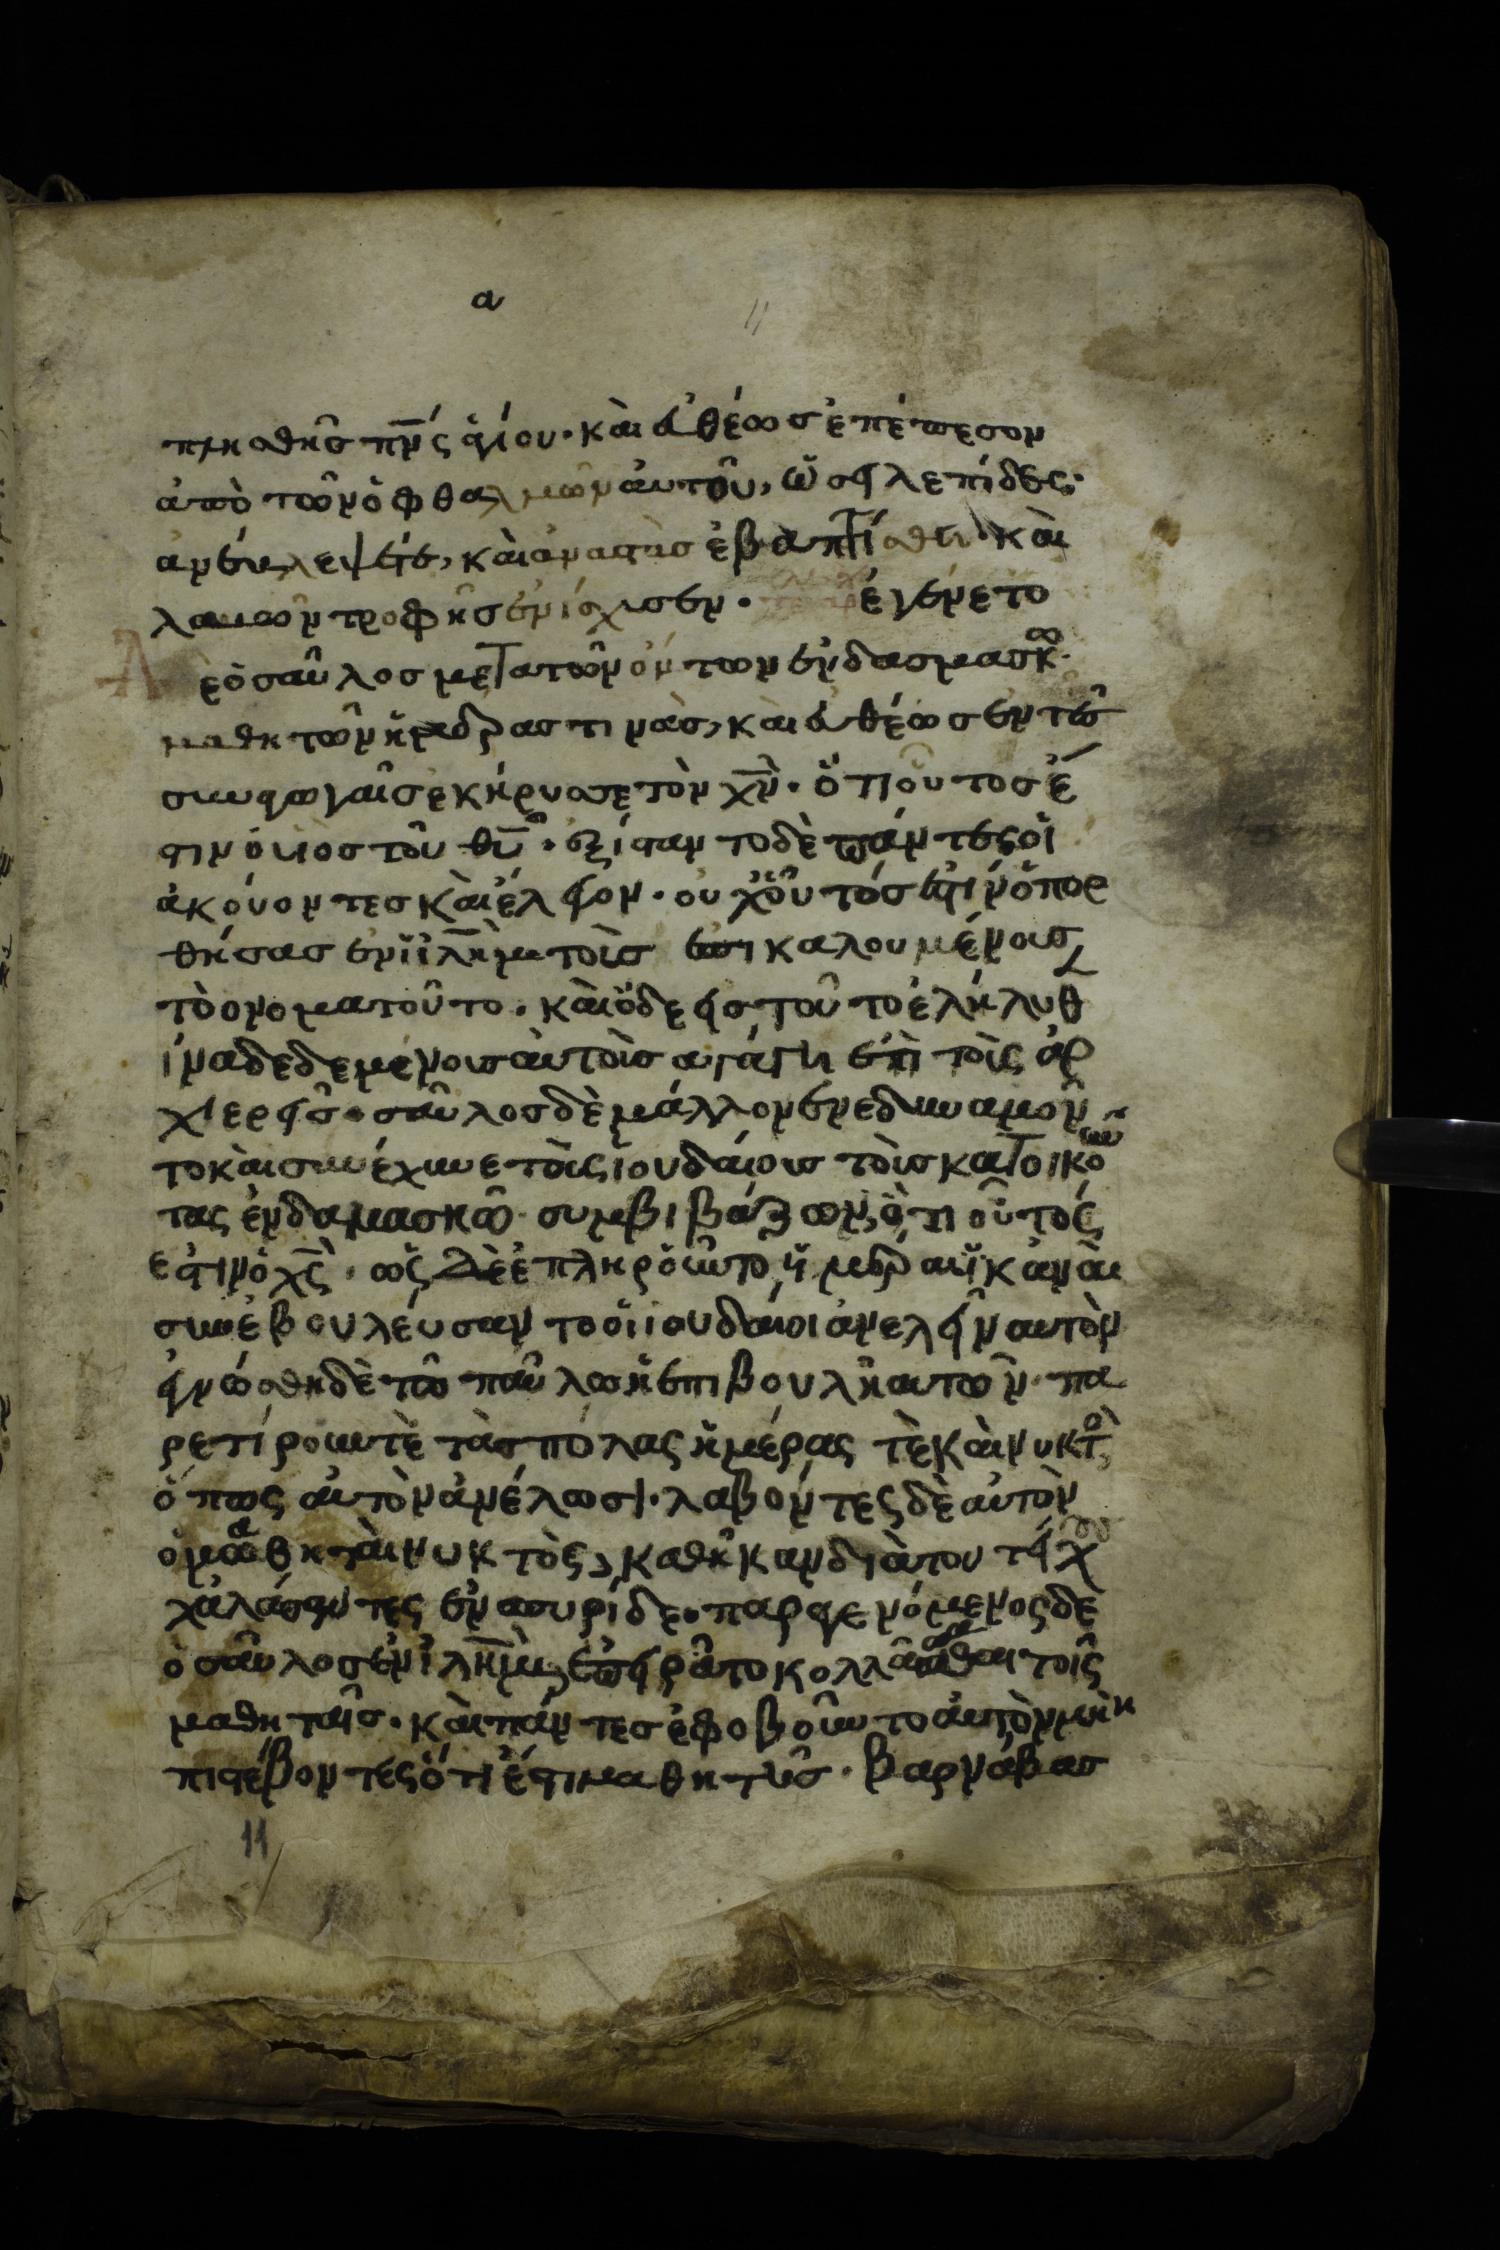 α 11
πλησθῆς πνς ἁγίου· καὶ εὐθέως ἐπέπεσον
ἀπὸ τῶν ὀφθαλμῶν αὐτοῦ, ὥσει λεπίδες·
ἀνέβλεψέ, καὶ ἀναστὰσ ἐβαπτίσθη· καὶ
λαβὼν τροφῆσ ἐνίσχυσεν· ἐγένετο
Δὲ ὁ σαῦλοσ μετα τῶν όντων ἐν δαμασκῶ·
μαθητῶν ἡμέρασ τινὰσ, καὶ εὐθέωσ ἐν τῶ
συναγωγαῖσ ἐκήρυσσε τὸν χν· ὅτι οὗτοσ ἐ
στιν ὁ υἱὸσ τοῦ θυ· ἐξίσταντο δὲ πάντες οἱ
ἀκούοντεσ καὶ ἔλεγον· οὐχ οὗτόσ ἐστιν ὁ πορ
θήσασ ἐν ἰλημ τοὺσ ἐπικαλουμένουσ
τὸ ονομα τοῦτο· καὶ ὧδε εἰσ τοῦτο ἐλήλυθ
ίνα δεδεμένουσ αὐτοὺσ αγάγη ἐπὶ τοὺς ἀρ
χιερεῖσ· σαῦλοσ δὲ μάλλον ἐνεδυναμοῦ
το καὶ συνέχυνε τοὺς ἰουδαίουσ τοὺσ κατοικοῦν
τας ἐν δαμασκῶ· συμβιβάζων, ὅτι οὗτός
ἐστιν ὁ χς· ὡς δὲ ἐπληροῦντο ἡμέραι ἱκαναὶ
συνεβουλεύσαντο οἱ ἰουδαίοι ἀνελεῖν αυτὸν
ἐγνώσθη δὲ τῶ παῦλω ἡ ἐπιβουλὴ αυτῶν· πα
ρετίρουν τὲ τὰσ πόλας ἡμέρας τὲ καὶ νυκτὸ
ὅπως αὐτὸν ἀνέλωσι· λαβόντες δὲ αὐτὸν
νυκτὸς, καθῆκαν διὰ του τείχ
χαλάσαντες ἐν σπυρίδι· παραγενόμενος δε
ὁ σαῦλοσ ἐν ἰλημ, ἐπειρᾶτο κολλᾶσθαι τοῖς
μαθηταῖσ· καὶ πάντεσ ἐφοβοῦντο αὐτὸν μὴ
πιστέβοντες ὅτι ἔστι μαθητῆσ· βαρνάβασ
11